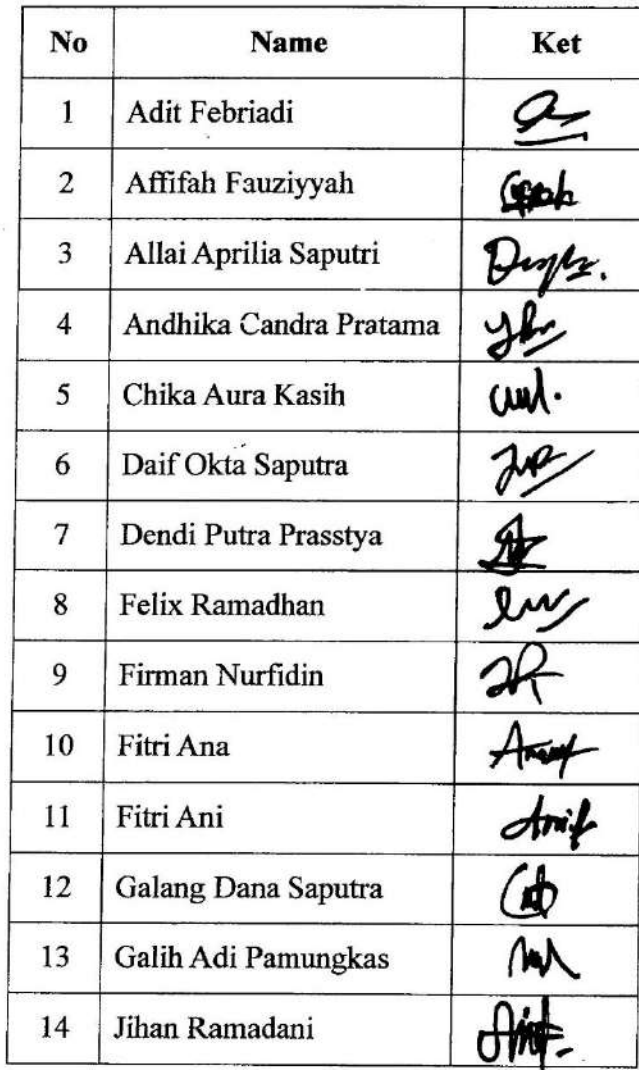 No Name Ket
1 Adit Febriadi
2 Affifah Fauziyyah
3 Allai Aprilia Saputri
4 Andhika Candra Pratama
5 Chika Aura Kasih
6 Daif Okta Saputra
7 Dendi Putra Prasstya
8 Felix Ramadhan
9 Firman Nurfidin
10 Fitri Ana
11 Fitri Ani
12 Galang Dana Saputra
13 Galih Adi Pamungkas
14 Jihan Ramadani